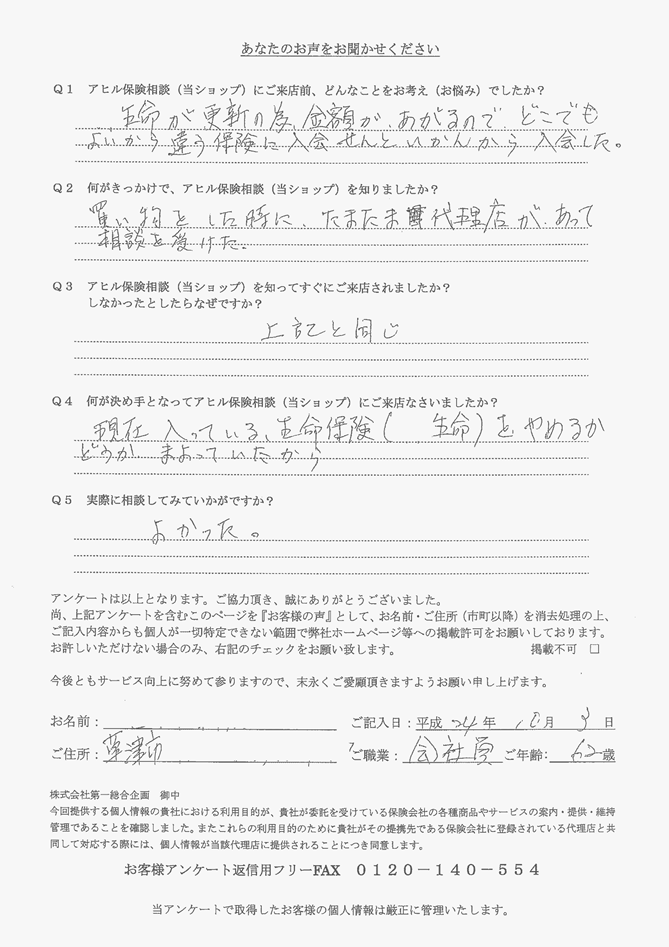 あなたのお声をお聞かせください
Q1 アヒル保険相談（当ショップ）にご来店前、どんなことをお考え（お悩み）でしたか？
生命が更新の為、金額が、あがるので、どこでも
よいから違う保険に入会せんといかんから入会した。
Q2 何がきっかけで、アヒル保険相談（当ショップ）を知りましたか？
買い物をした時に、たまたま代理店があって
相談を受けた。
Q3 アヒル保険相談（当ショップ）を知ってすぐにご来店されましたか？
しなかったとしたらなぜですか？
上記と同じ
Q4 何が決め手となってアヒル保険相談（当ショップ）にご来店なさいましたか？
現在入っている、生命保険（ 生命）をやめるか
どうかまよっていたから
Q5 実際に相談してみていかがですか？
よかった。
アンケートは以上となります。ご協力頂き、誠にありがとうございました。
尚、上記アンケートを含むこのページを『お客様の声』として、お名前・ご住所（市町以降）を消去処理の上、
ご記入内容からも個人が一切特定できない範囲で弊社ホームページ等への掲載許可をお願いしております。
お許しいただけない場合のみ、右記のチェックをお願い致します。 掲載不可 □
今後ともサービス向上に努めて参りますので、末永くご愛顧頂きますようお願い申し上げます。
お名前： ご記入日：平成 24 年 10 月 3 日
ご住所： 草津市 ご職業： 会社員 ご年齢： 62 歳
株式会社第一総合企画 御中
今回提供する個人情報の貴社における利用目的が、貴社が委託を受けている保険会社の各種商品やサービスの案内・提供・維持
管理であることを確認しました。またこれらの利用目的のために貴社がその提携先である保険会社に登録されている代理店と共
同して対応する際には、個人情報が当該代理店に提供されることにつき同意します。
お客様アンケート返信用フリーFAX ０１２０－１４０－５５４
当アンケートで取得したお客様の個人情報は厳正に管理いたします。